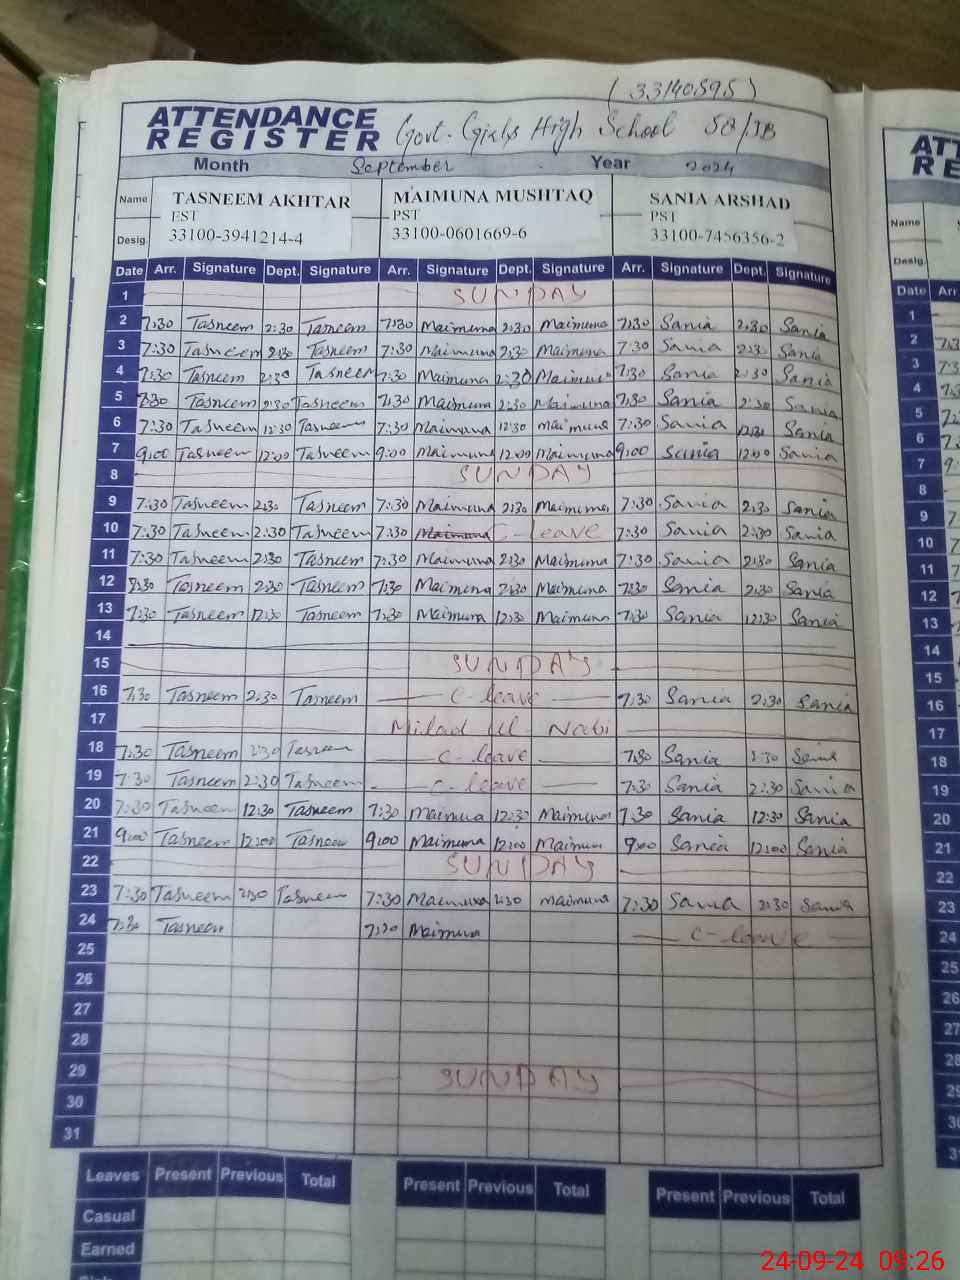 (33140595)
ATTENDANCE REGISTER Govt. Girls High School 58/JB
Month September Year 2024
Name TASNEEM AKHTAR MAIMUNA MUSHTAQ SANIA ARSHAD
EST PST PST
Desig. 33100-3941214-4 33100-0601669-6 33100-7456356-2
Date Arr. Signature Dept. Signature Arr. Signature Dept. Signature Arr. Signature Dept. Signature
1 SUNDAY
2 7:30 Tasneem 2:30 Tasneem 7:30 Maimuna 2:30 Maimuna 7:30 Sania 2:30 Sania
3 7:30 Tasneem 2:30 Tasneem 7:30 Maimuna 2:30 Maimuna 7:30 Sania 2:30 Sania
4 7:30 Tasneem 2:30 Tasneem 7:30 Maimuna 2:30 Maimuna 7:30 Sania 2:30 Sania
5 7:30 Tasneem 2:30 Tasneem 7:30 Maimuna 2:30 Maimuna 7:30 Sania 2:30 Sania
6 7:30 Tasneem 12:30 Tasneem 7:30 Maimuna 12:30 Maimuna 7:30 Sania 12:30 Sania
7 9:00 Tasneem 12:00 Tasneem 9:00 Maimuna 12:00 Maimuna 9:00 Sania 12:00 Sania
8 SUNDAY
9 7:30 Tasneem 2:30 Tasneem 7:30 Maimuna 2:30 Maimuna 7:30 Sania 2:30 Sania
10 7:30 Tasneem 2:30 Tasneem 7:30 Maimuna C-leave 7:30 Sania 2:30 Sania
11 7:30 Tasneem 2:30 Tasneem 7:30 Maimuna 2:30 Maimuna 7:30 Sania 2:30 Sania
12 7:30 Tasneem 2:30 Tasneem 7:30 Maimuna 2:30 Maimuna 7:30 Sania 2:30 Sania
13 7:30 Tasneem 12:30 Tasneem 7:30 Maimuna 12:30 Maimuna 7:30 Sania 12:30 Sania
14
15 SUNDAY
16 7:30 Tasneem 2:30 Tasneem C-leave 7:30 Sania 2:30 Sania
17 Milad Ul - Nabi
18 7:30 Tasneem 2:30 Tasneem C-leave 7:30 Sania 2:30 Sania
19 7:30 Tasneem 2:30 Tasneem C-leave 7:30 Sania 2:30 Sania
20 7:30 Tasneem 12:30 Tasneem 7:30 Maimuna 12:30 Maimuna 7:30 Sania 12:30 Sania
21 9:00 Tasneem 12:00 Tasneem 9:00 Maimuna 12:00 Maimuna 9:00 Sania 12:00 Sania
22 SUNDAY
23 7:30 Tasneem 2:30 Tasneem 7:30 Maimuna 2:30 Maimuna 7:30 Sania 2:30 Sania
24 7:30 Tasneem 7:30 Maimuna C-leave
25
26
27
28
29 SUNDAY
30
31
Leaves Present Previous Total Present Previous Total Present Previous Total
Casual
Earned
Name
Desig.
Date Arr
1
2
3
4
5
6
7
8
9
10
11
12
13
14
15
16
17
18
19
20
21
22
23
24
25
26
27
28
29
24-09-24 09:26